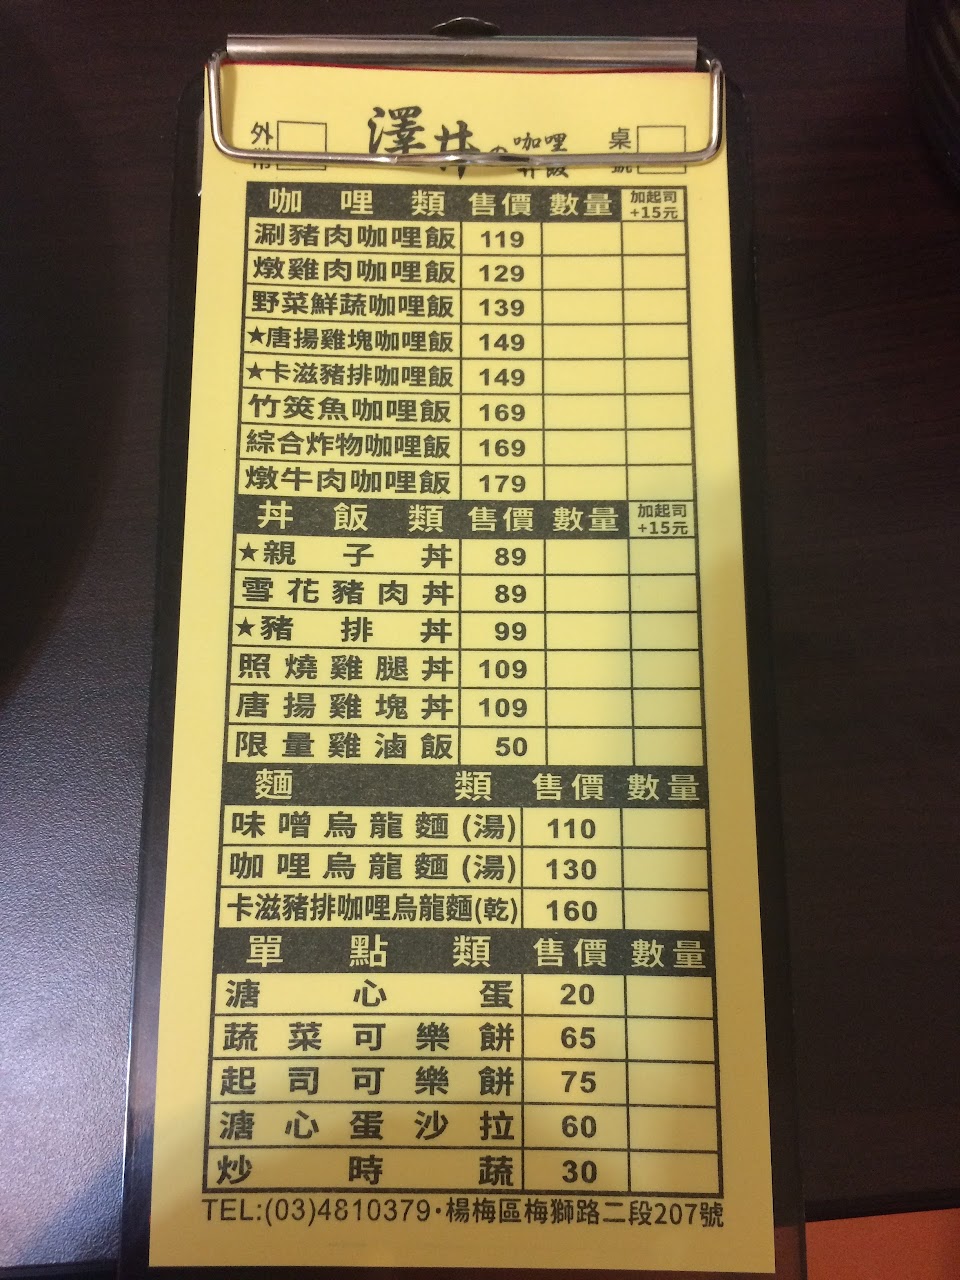 外帶 澤井の咖哩丼飯 桌號
咖哩類 售價 數量 加起司+15元
涮豬肉咖哩飯 119
燉雞肉咖哩飯 129
野菜鮮蔬咖哩飯 139
★唐揚雞塊咖哩飯 149
★卡滋豬排咖哩飯 149
竹筴魚咖哩飯 169
綜合炸物咖哩飯 169
燉牛肉咖哩飯 179
丼飯類 售價 數量 加起司+15元
★親子丼 89
雪花豬肉丼 89
★豬排丼 99
照燒雞腿丼 109
唐揚雞塊丼 109
限量雞滷飯 50
麵類 售價 數量
味噌烏龍麵(湯) 110
咖哩烏龍麵(湯) 130
卡滋豬排咖哩烏龍麵(乾) 160
單點類 售價 數量
溏心蛋 20
蔬菜可樂餅 65
起司可樂餅 75
溏心蛋沙拉 60
炒時蔬 30
TEL:(03)4810379·楊梅區梅獅路二段207號